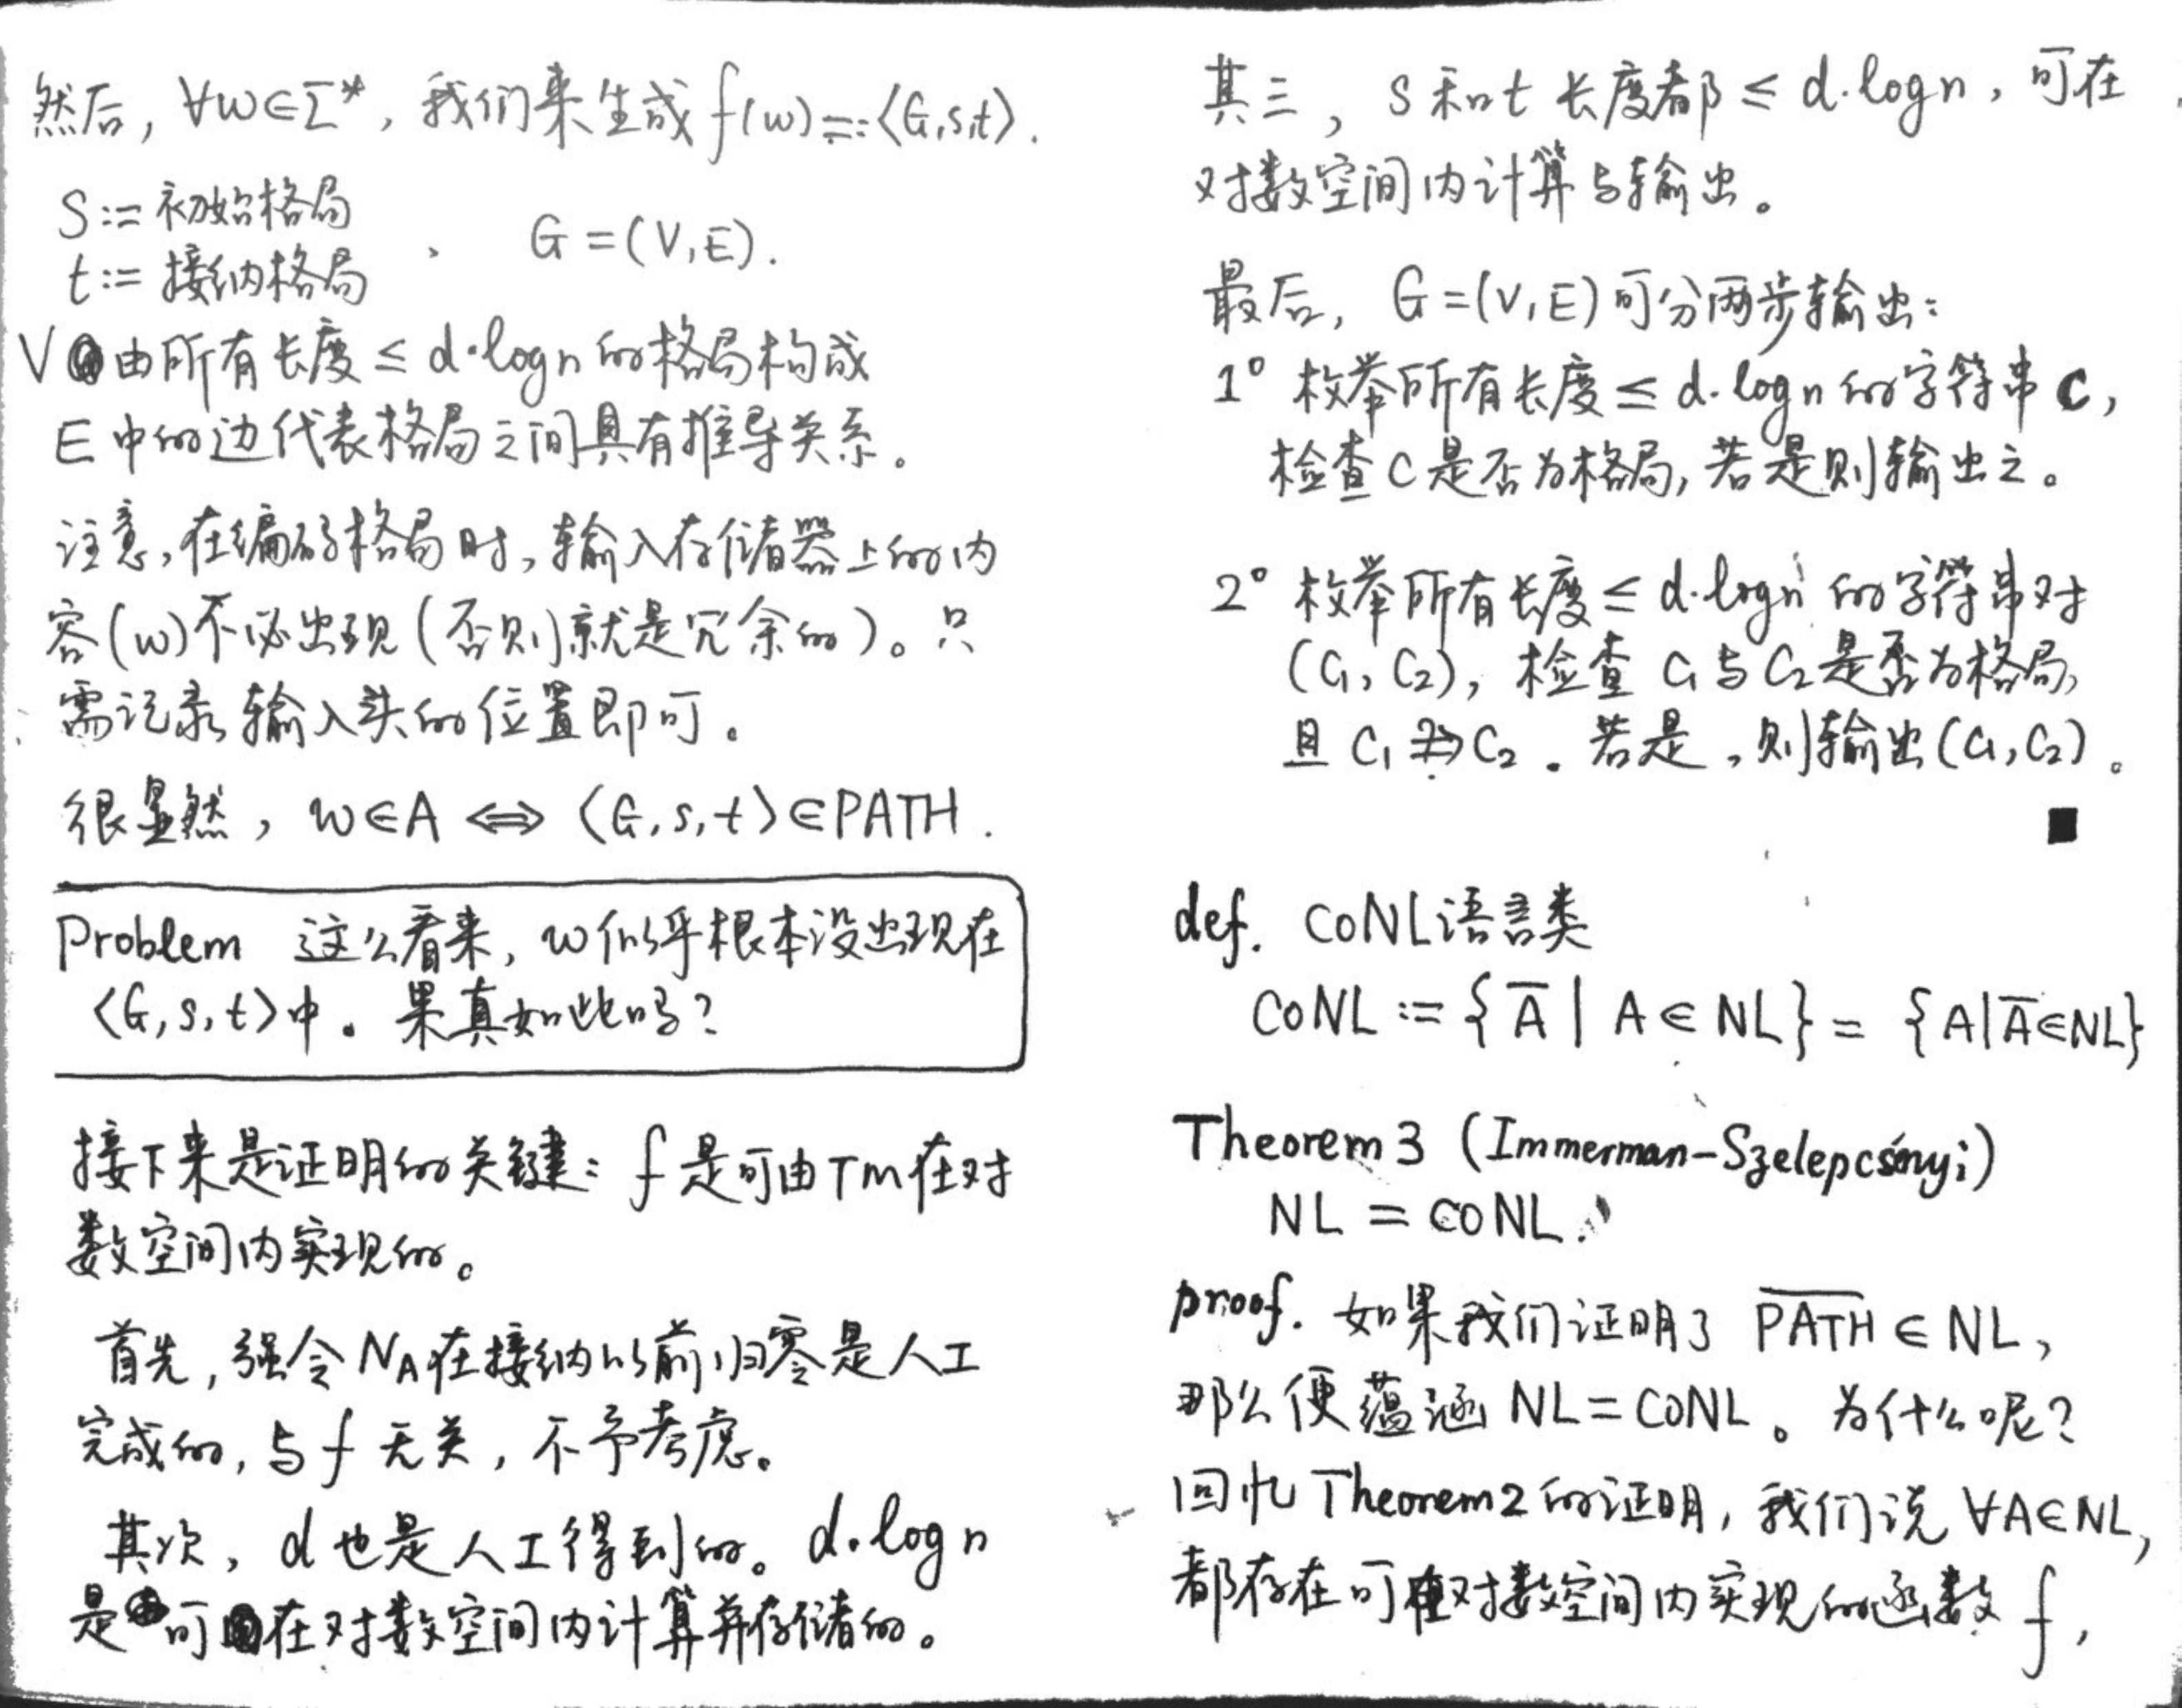 然后, ∀w∈Σ*, 我们来生成 f(w)=:⟨G,s,t⟩.
S:= 初始格局
t:= 接纳格局
、 G=(V,E).
V由所有长度≤ d·logn的格局构成
E中的边代表格局之间具有推导关系。
注意,在编码格局时,输入存储器上的内
容(w)不必出现(否则就是冗余的)。只
需记录输入头的位置即可。
很显然, w∈A ⟺ ⟨G,s,t⟩∈PATH.
Problem 这么看来, w似乎根本没出现在
⟨G,s,t⟩中。果真如此吗?
接下来是证明的关键: f是可由TM在对
数空间内实现的。
首先,强令N_A在接纳以前归零是人工
完成的,与f无关,不予考虑。
其次, d也是人工得到的。d·logn
是可在对数空间内计算并存储的。
其三, s和t长度都≤ d·logn, 可在
对数空间内计算与输出。
最后, G=(V,E)可分两步输出:
1° 枚举所有长度≤ d·logn的字符串C,
检查C是否为格局,若是则输出之。
2° 枚举所有长度≤ d·logn的字符串对
(C₁, C₂), 检查C₁与C₂是否为格局,
且C₁ ⇒ C₂. 若是,则输出(C₁,C₂)。
■
def. CoNL语言类
CoNL := { A̅ | A ∈ NL} = {A|A̅∈NL}
Theorem 3 (Immerman-Szelepcsényi)
NL = CONL.
proof. 如果我们证明了 P̅A̅T̅H̅ ∈ NL,
那么便蕴涵NL=CONL。为什么呢?
回忆Theorem2的证明, 我们说∀A∈NL,
都存在可在对数空间内实现的函数f,